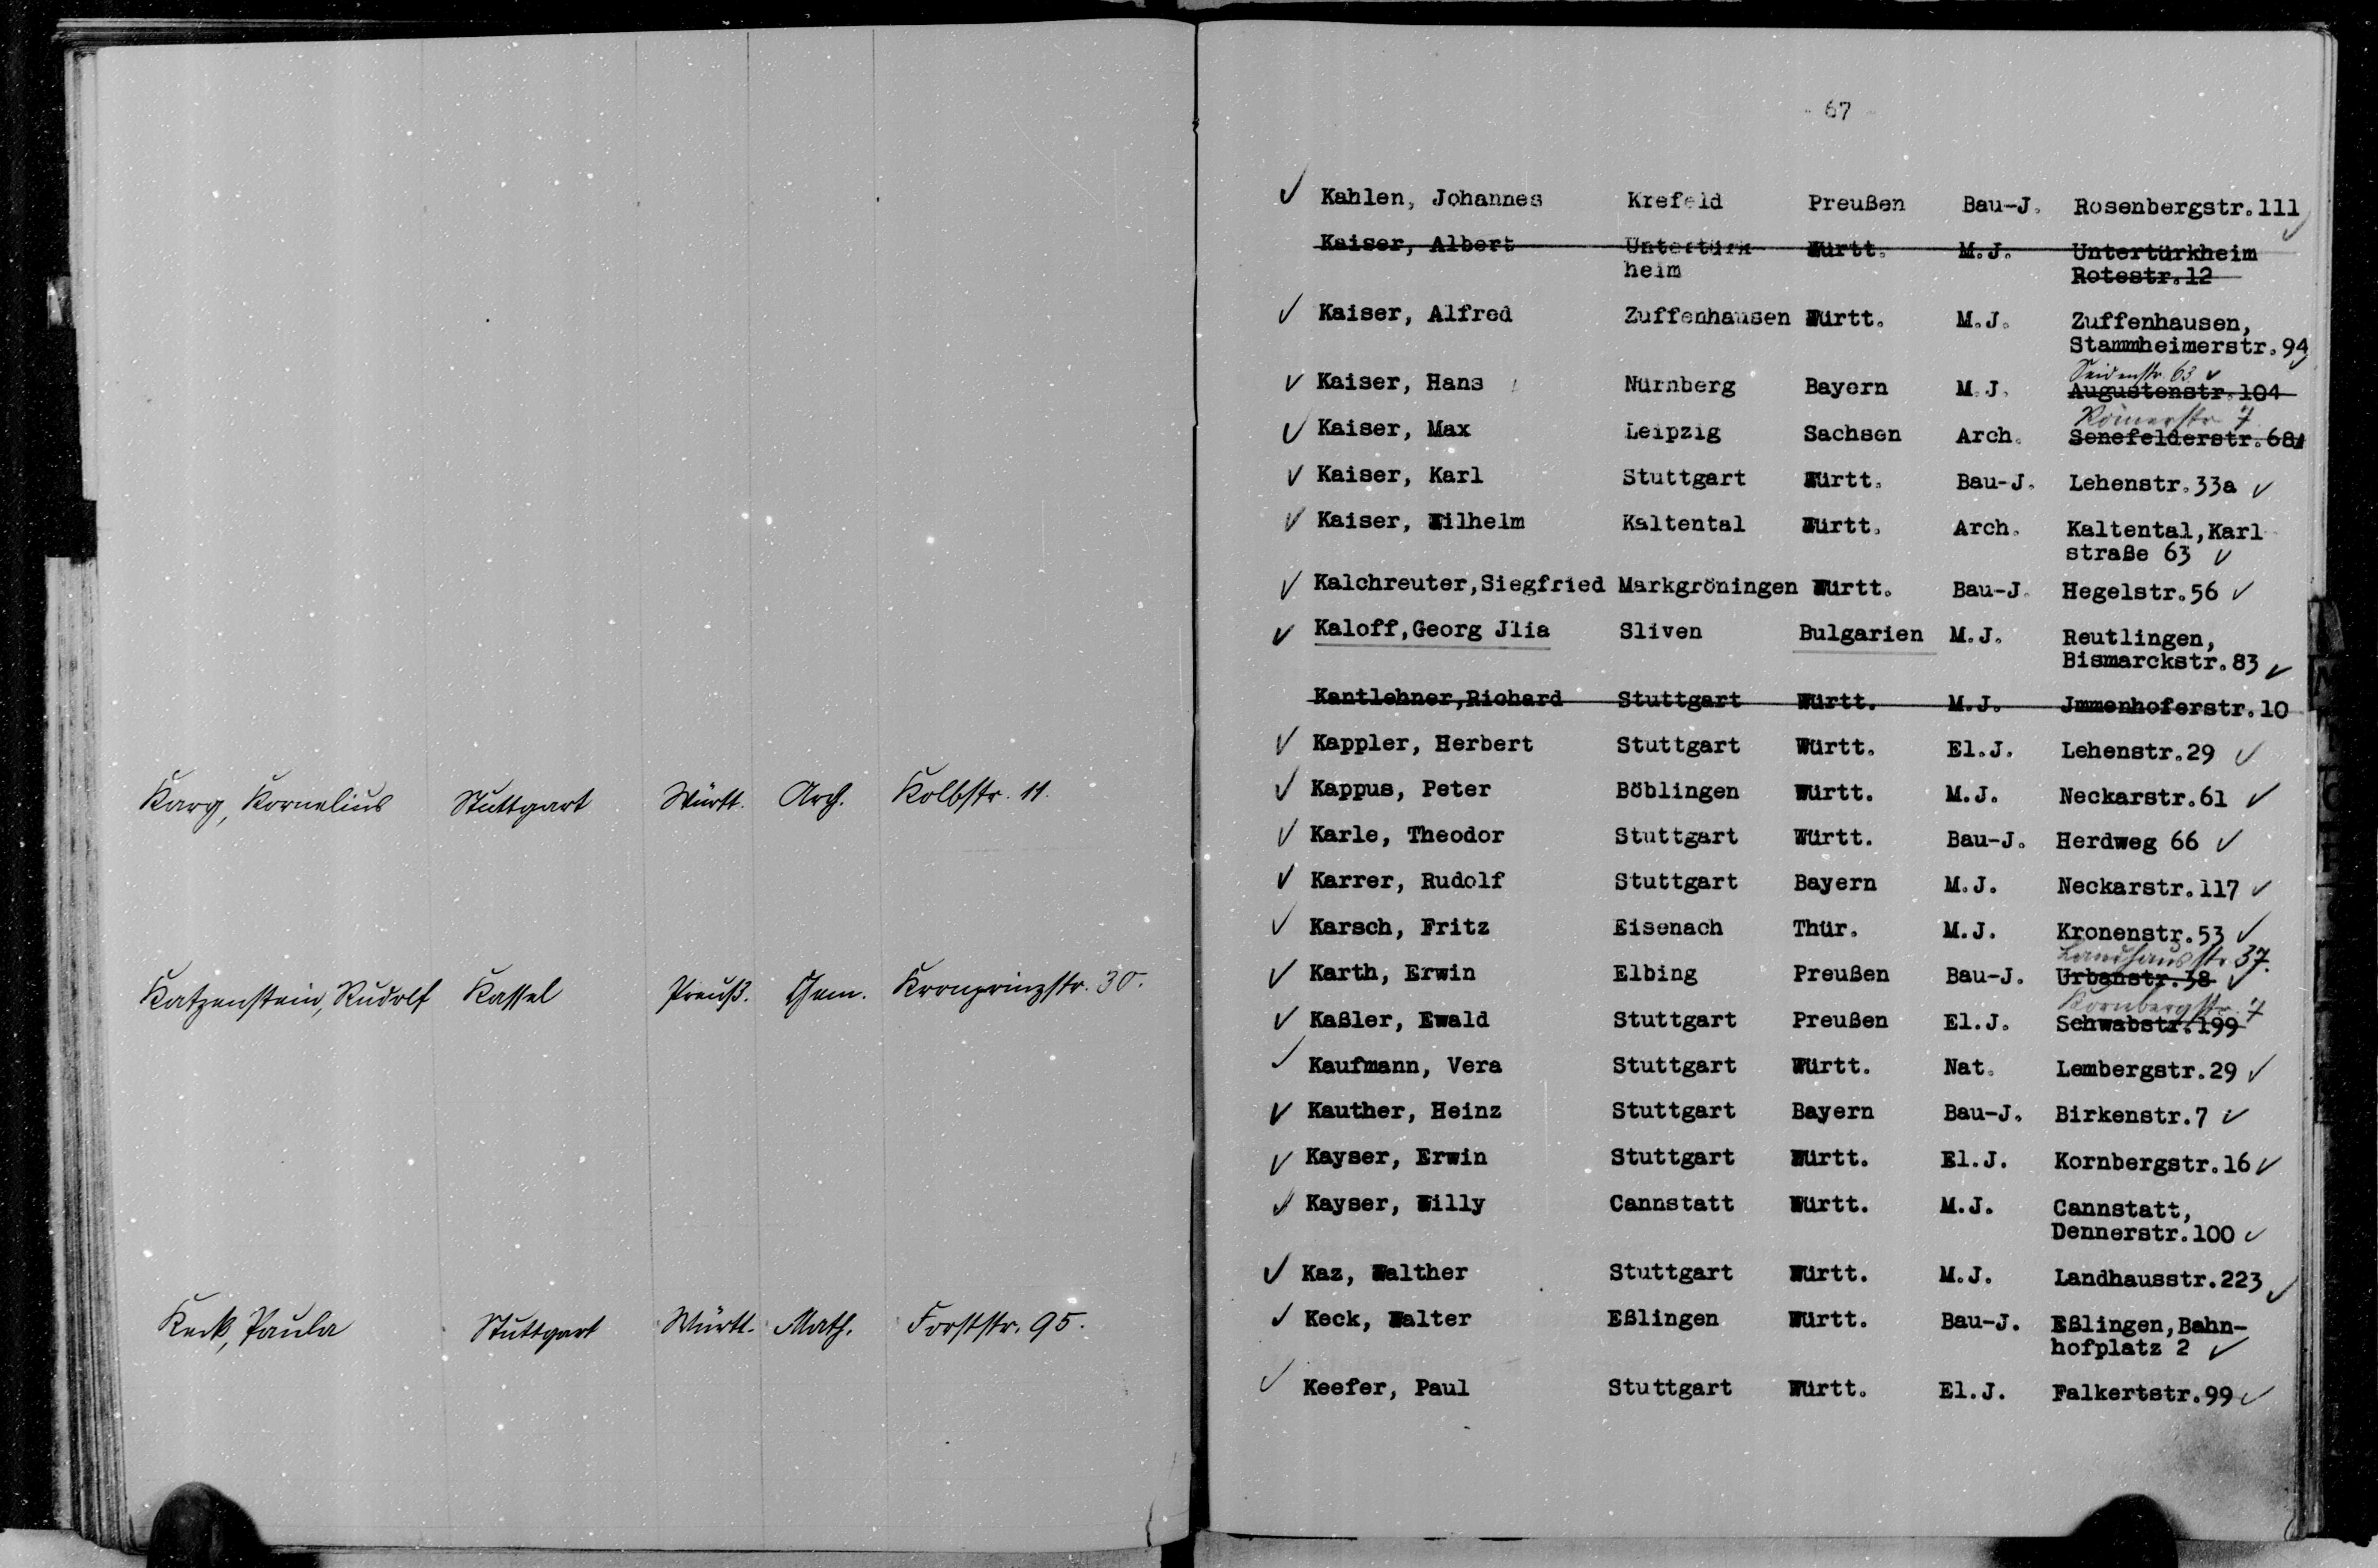 Karg, Kornelius Stuttgart Württ. Arch. Kolbstr. 11.
Katzenstein, Rudolf Kassel Preuß. Chem. Kronprinzstr. 30.
Keck, Paula Stuttgart Württ. Math. Forststr. 95.
67
Kahlen, Johannes Krefeld Preußen Bau-J. Rosenbergstr.111
Kaiser, Albert Untertürk Württ. M.J. Untertürkheim
heim Rotestr.12
Kaiser, Alfred Zuffenhausen Württ. M.J. Zuffenhausen,
Stammheimerstr.94
Seidenstr. 63
Kaiser, Hans Nürnberg Bayern M.J. Augustenstr.104
Römerstr. 7
Kaiser, Max Leipzig Sachsen Arch. Senefelderstr.68
Kaiser, Karl Stuttgart Württ. Bau-J. Lehenstr.33a
Kaiser, Wilhelm Kaltental Württ. Arch. Kaltental,Karl
straße 63
Kalchreuter,Siegfried Markgröningen Württ. Bau-J. Hegelstr.56
Kaloff,Georg Jlia Sliven Bulgarien M.J. Reutlingen,
Bismarckstr.83
Kantlehner,Richard Stuttgart Württ. M.J. Jmmenhoferstr.10
Kappler, Herbert Stuttgart Württ. El.J. Lehenstr.29
Kappus, Peter Böblingen Württ. M.J. Neckarstr.61
Karle, Theodor Stuttgart Württ. Bau-J. Herdweg 66
Karrer, Rudolf Stuttgart Bayern M.J. Neckarstr.117
Karsch, Fritz Eisenach Thür. M.J. Kronenstr.53
Landhausstr 37.
Karth, Erwin Elbing Preußen Bau-J. Urbanstr.38
Kornbergstr. 7
Kaßler, Ewald Stuttgart Preußen El.J. Schwabstr.199
Kaufmann, Vera Stuttgart Württ. Nat. Lembergstr.29
Kauther, Heinz Stuttgart Bayern Bau-J. Birkenstr.7
Kayser, Erwin Stuttgart Württ. El.J. Kornbergstr.16
Kayser, Willy Cannstatt Württ. M.J. Cannstatt,
Dennerstr.100
Kaz, Walther Stuttgart Württ. M.J. Landhausstr.223
Keck, Walter Eßlingen Württ. Bau-J. Eßlingen,Bahn-
hofplatz 2
Keefer, Paul Stuttgart Württ. El.J. Falkertstr.99